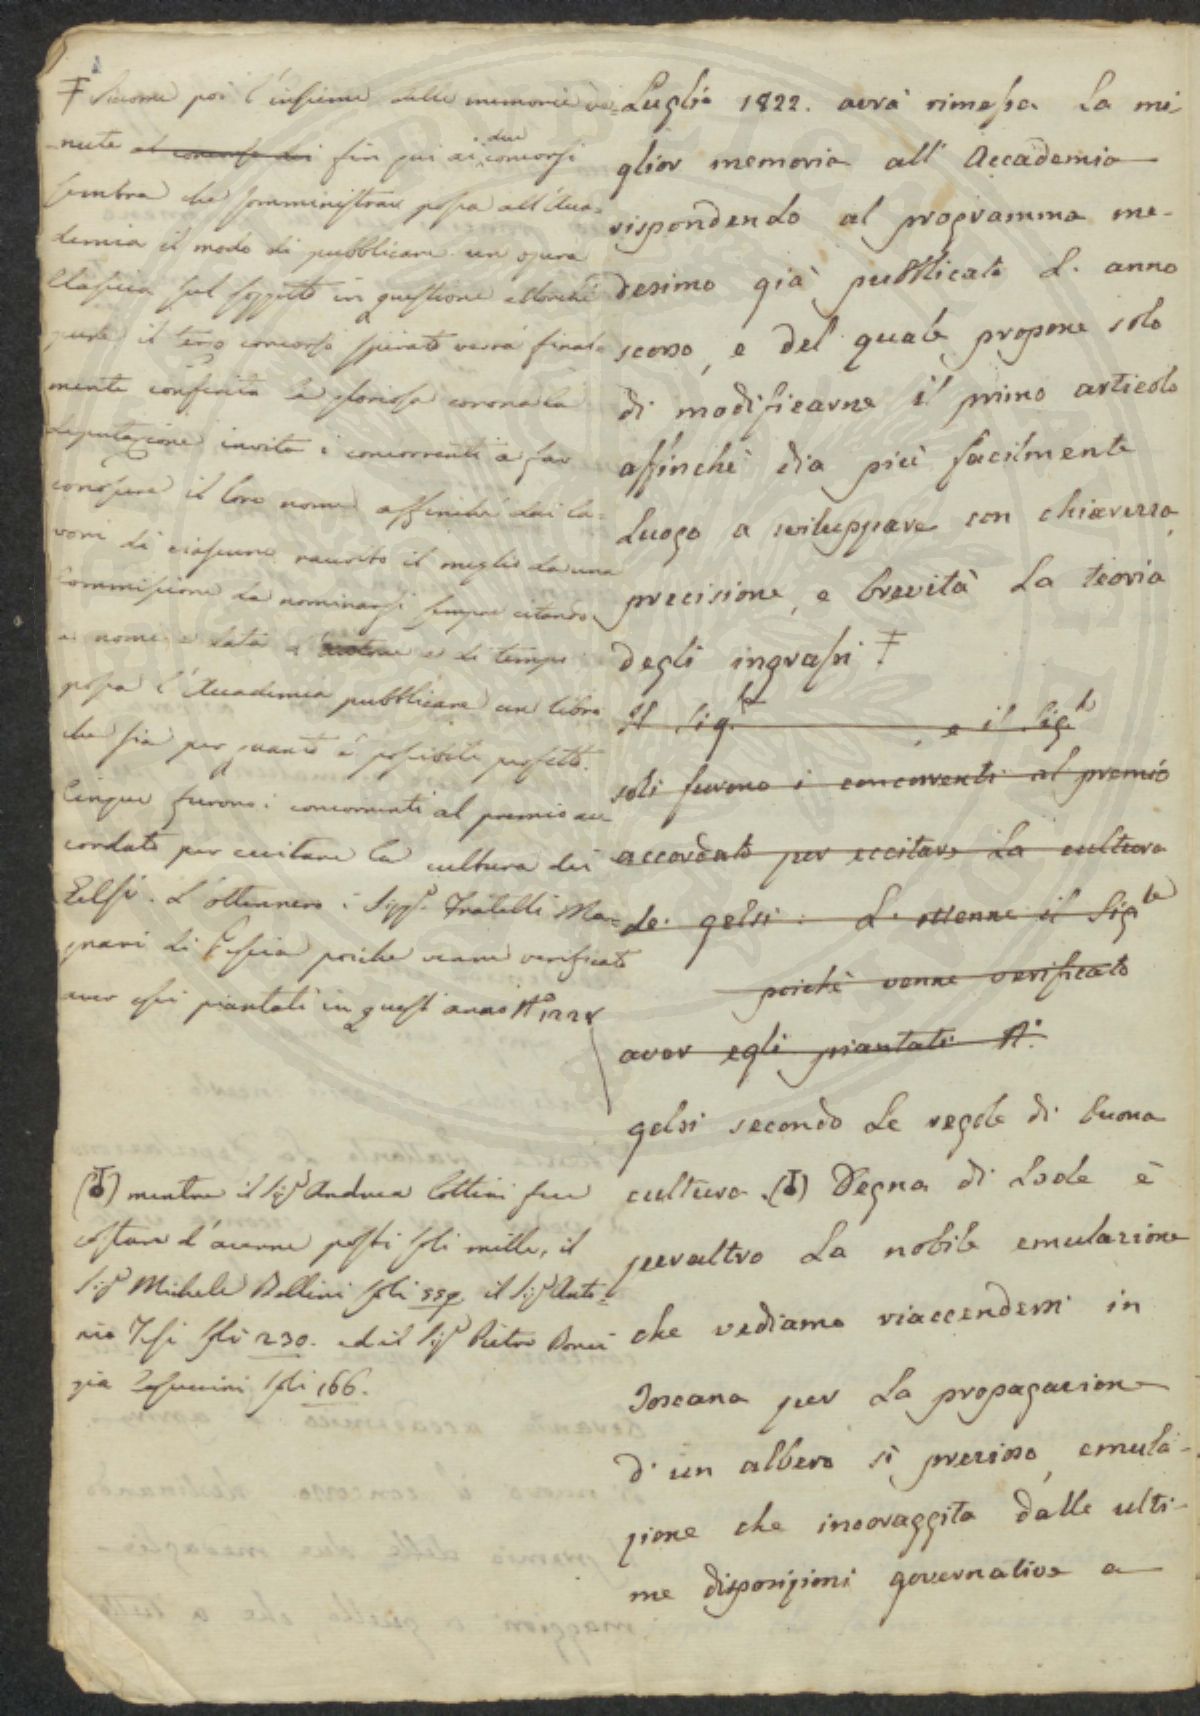 ‡ Siccome poi l'insieme delle memorie ve-
-nute al concorso dei fin qui ai due concorsi
sembra che somministrar possa all'Acca-
demia il modo di pubblicare un opera
Classica sul soggetto in questione allorché
il terzo concorso spirato verrà final-
mente conferita la gloriosa corona la
Deputazione invita i concorrenti a far
conoscere il loro nome affinché dai la-
vori di ciascuno raccolto il meglio da una
Commissione da nominarsi sempre citando
nome e data e di tempi
possa l'Accademia pubblicare un libro
che sia per quanto è possibile perfetto.
Cinque furono i concorrenti al premio ac-
cordato per eccitare la cultura dei
Gelsi. L'ottennero i Sigg.ri Fratelli Ma-
gnani di Pescia poiché venne verificato
aver essi piantati in quest'anno N.o 1228
(♁) mentre il Sig.r Andrea Cottini fece
costare d'averne posti soli mille, il
Sig.r Michele Bellini soli 559. il Sig.r Anto-
nio Tesi soli 230. ed il Sig.r Pietro
soli 166.
Luglio 1822. avrà rimessa la mi-
glior memoria all' Accademia
rispondendo al programma me-
desimo già pubblicato L' anno
scorso, e del quale propone solo
di modificarne il primo articolo
affinchè dia più facilmente
Luogo a sviluppare con chiarezza,
precisione, e brevità la teoria
degli ingrassi ‡
Il Sig.re , e il Sig.r
soli furono i concorrenti al premio
accordato per eccitare La cultura
de' gelsi: L' ottenne il Sig.re
poichè venne verificato
aver egli piantati N.
gelsi secondo Le regole di buona
cultura. (♁) Degna di Lode è
peraltro La nobile emulazione
che vediamo riaccendersi in
Toscana per La propagazione
d' un albero sì prezioso, emula-
zione che incoraggita dalle ulti-
me disposizioni governative a